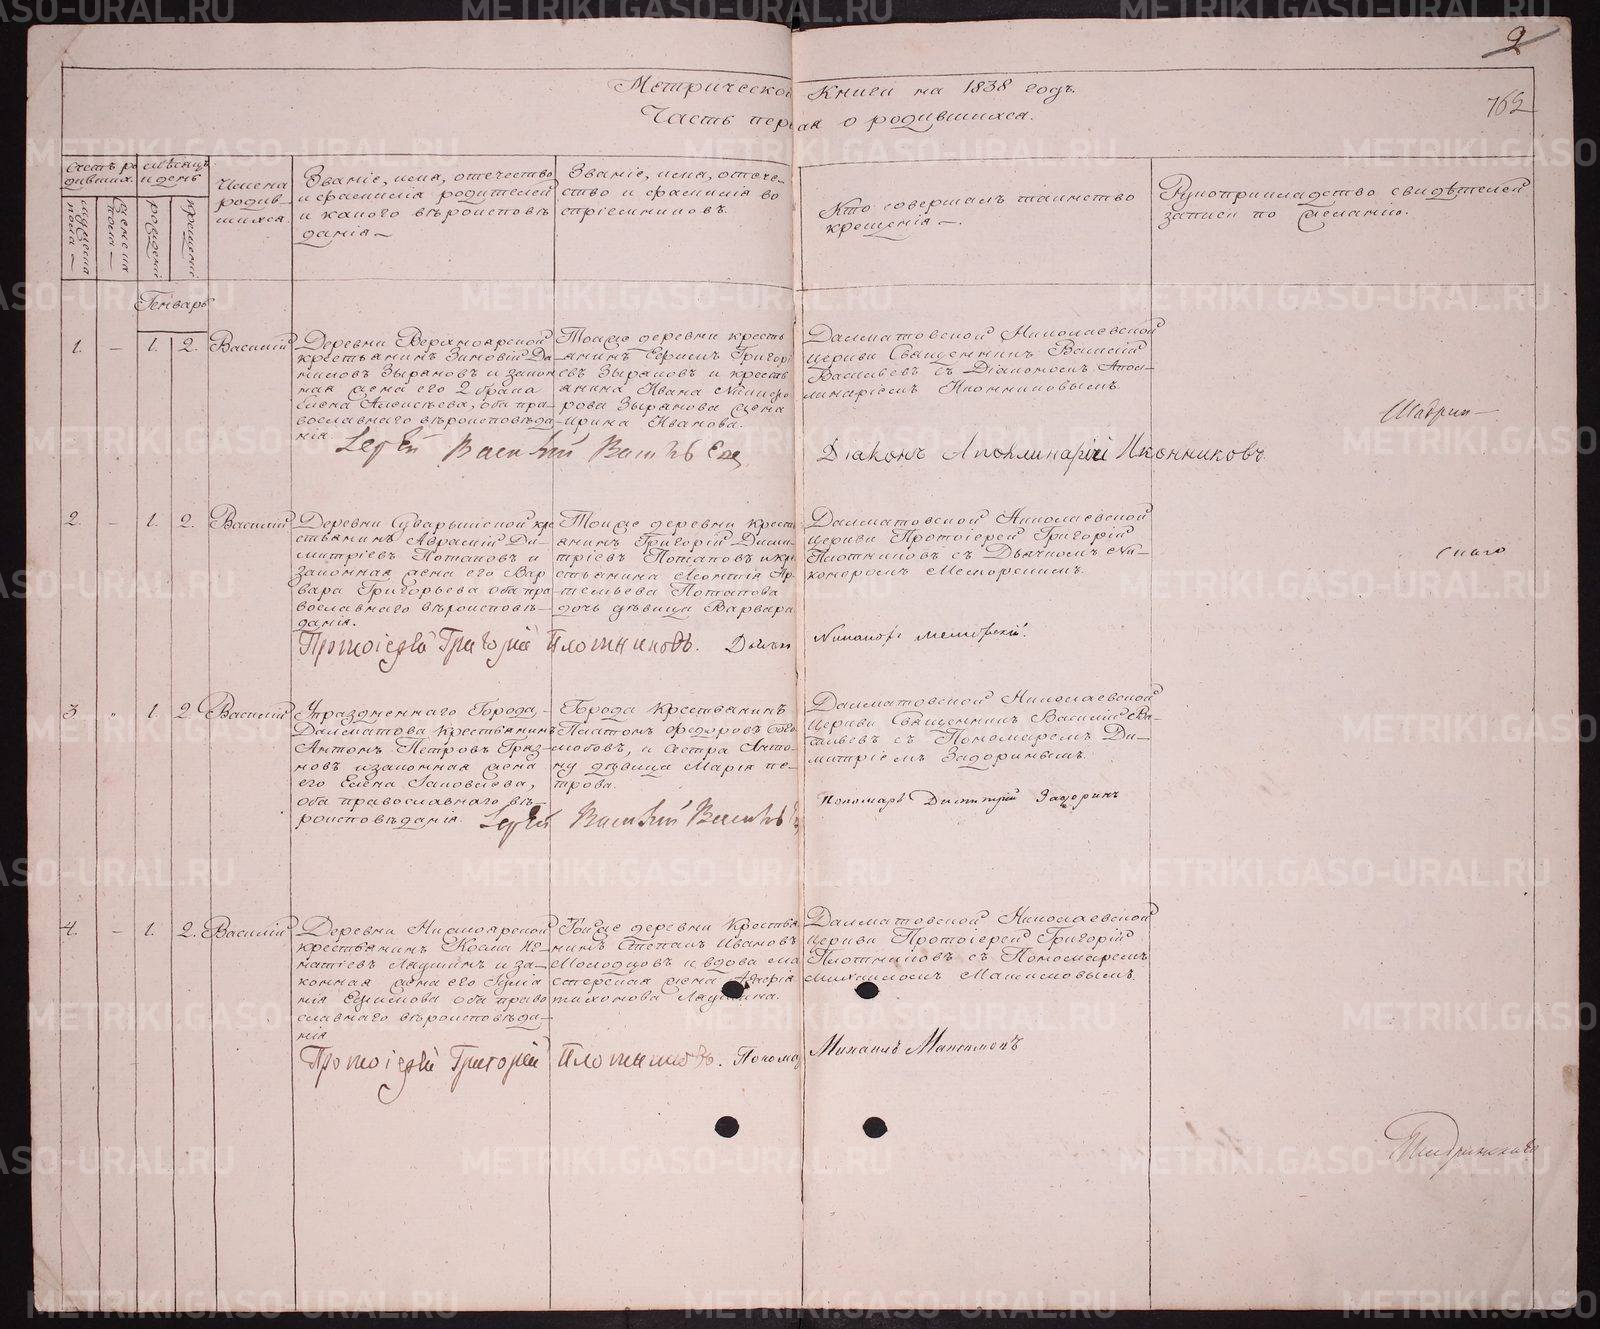 2
Метрической Книги на 1838 годъ.
762
Часть первая о родившихся.
Счетъ ро-
дившихъ.
мѣсяцъ
и день
Имена
родив-
шихся.
Званіе, имя, отчество
и фамилія родителей
и какого вѣроисповѣ
данія —
Званіе, имя, отече-
ство и фамилія во
спріемниковъ.
Кто совершалъ таинство
крещенія —.
Рукоприкладство свидѣтелей
записи по желанію.
мужеска
пола —
женска
пола —
рожденія
крещенія
Генварь
1. — 1. 2. Василій
Деревни Верхноярской
крестьянинъ Зиновій Да-
ниловъ Зыряновъ и закон
ная жена его 2 брака
Елена Алексѣева, оба пра-
вославнаго вѣроисповѣда-
нія.
Тоиже деревни кресть
янинъ Ефимъ Григорі
евъ Зыряновъ и кресть
янина Ивана Никифо
рова Зырянова жена
Ирина Иванова.
Далматовской Николаевской
церкви Священникъ Василій
Васильевъ съ Діакономъ Апол-
линаріемъ Иконниковымъ.
Іерей Василий Василь
Діаконъ Аполлинарій Иконниковъ.
2. — 1. 2. Василій
Деревни Суварышской кре
стьянинъ Аврамій Ди-
митріевъ Потаповъ и
законная жена его Вар
вара Григорьева оба пра
вославнаго вѣроисповѣ-
данія.
Тоиже деревни крест
янинъ Григорій Дими-
тріевъ Потаповъ и кре
стьянина Леонтія Ар-
темьева Потапова
дочь дѣвица Варвара
Далматовской Николаевской
церкви Протоіерей Григорій
Плотниковъ съ Дьячкомъ Ни-
каноромъ
Протоіерей Григорій Плотниковъ.
Никаноръ
3 " 1. 2. Василій
Упраздненнаго Города
Далматова крестьянинъ
Антонъ Петровъ Гряз-
новъ и законная жена
его Елена Іаковлева,
оба православнаго вѣ-
роисповѣданія.
Города крестьянинъ
Платонъ Федоровъ Бого
любовъ, и сестра Анто-
ну дѣвица Марія Пе-
трова.
Далматовской Николаевской
церкви Священникъ Василій Ва-
сильевъ съ Пономаремъ Ди-
митріемъ Задоринымъ.
Іерей Василий Василь
Пономарь Димитрій Задоринъ
4. — 1. 2. Василій
Деревни Нижноярской
крестьянинъ Косма Иг-
натіевъ Ляпинъ и за-
конная жена его Іуліа
нія Ефимова оба право
славнаго вѣроисповѣда-
нія
Тоиже деревни Крестья
нинъ Стефанъ Ивановъ
Молодцовъ и вдова ма
стерская жена
Тихонова
Далматовской Николаевской
церкви Протоіерей Григорій
Плотниковъ съ Пономаремъ
Михаиломъ Максимовымъ.
Протоіерей Григорій Плотниковъ. Понома
Михаилъ Максимовъ
METRIKI.GASO-URAL.RU